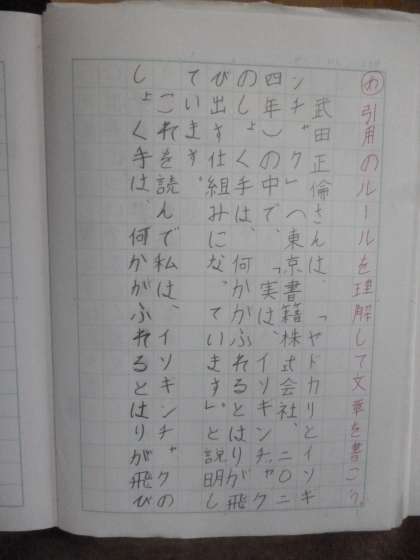 め 引用のルールを理解して文章を書こう。
武田正倫さんは、「ヤドカリとイソギ
ンチャク」(東京書籍株式会社、二〇二
四年)の中で、「実は、イソギンチャク
のしょく手は、何かがふれるとはりが飛
び出す仕組みになっています」と説明し
ています。
これを読んで私は、イソギンチャクの
しょく手は、何かがふれるとはりが飛び